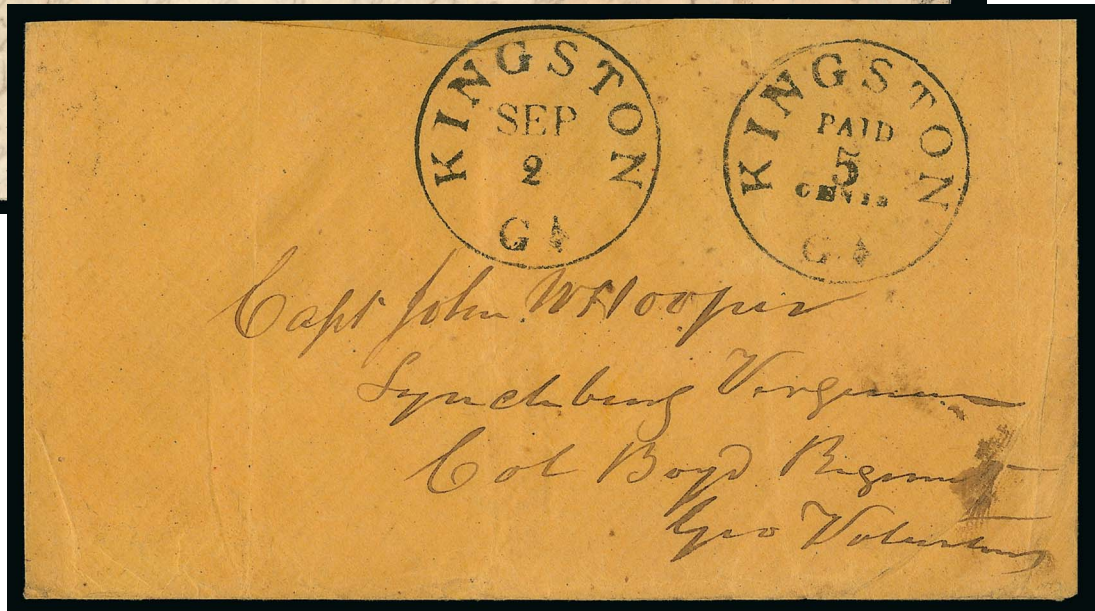 KINGSTON
SEP
2
GA
KINGSTON
PAID
5
CENTS
GA
Capt John W Hooper
Lynchburg Virginia
Col Boyd Regiment
Geo Volunteers